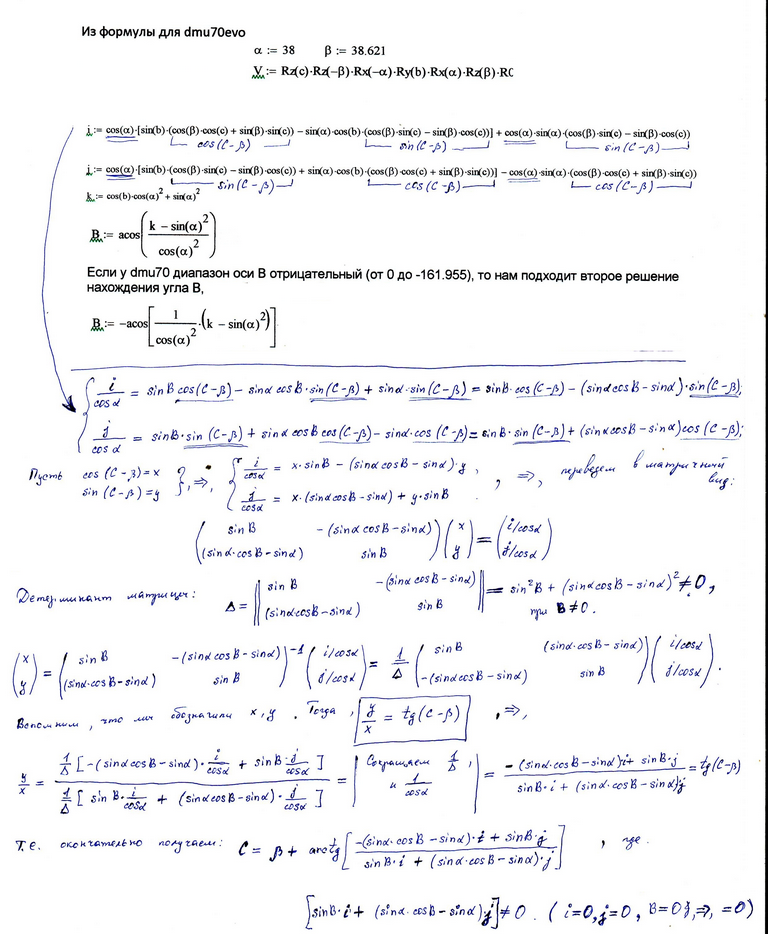 Из формулы для dmu70evo
α := 38    β := 38.621
V := Rz(c)·Rz(−β)·Rx(−α)·Ry(b)·Rx(α)·Rz(β)·RC
i := cos(α)·[sin(b)·(cos(β)·cos(c) + sin(β)·sin(c)) − sin(α)·cos(b)·(cos(β)·sin(c) − sin(β)·cos(c))] + cos(α)·sin(α)·(cos(β)·sin(c) − sin(β)·cos(c))
cos(C−β)    sin(C−β)    sin(C−β)
j := cos(α)·[sin(b)·(cos(β)·sin(c) − sin(β)·cos(c)) + sin(α)·cos(b)·(cos(β)·cos(c) + sin(β)·sin(c))] − cos(α)·sin(α)·(cos(β)·cos(c) + sin(β)·sin(c))
sin(C−β)    cos(C−β)    cos(C−β)
k := cos(b)·cos(α)² + sin(α)²
B := acos((k − sin(α)²)/cos(α)²)
Если у dmu70 диапазон оси В отрицательный (от 0 до -161.955), то нам подходит второе решение
нахождения угла В,
B := −acos[1/cos(α)²·(k − sin(α)²)]
i/cosα = sinB cos(C−β) − sinα cosB·sin(C−β) + sinα·sin(C−β) = sinB·cos(C−β) − (sinα cosB − sinα)·sin(C−β);
j/cosα = sinB·sin(C−β) + sinα cosB cos(C−β) − sinα·cos(C−β) = sinB·sin(C−β) + (sinα cosB − sinα)cos(C−β);
Пусть cos(C−β)=x sin(C−β)=y }, ⇒, { i/cosα = x·sinB − (sinα cosB − sinα)·y, j/cosα = x·(sinα cosB − sinα) + y·sinB , ⇒, переведем в матричный вид:
( sinB    −(sinα cosB − sinα) ) (x) = (i/cosα)
( (sinα·cosB − sinα)    sinB ) (y)   (j/cosα)
Детерминант матрицы: Δ = || sinB    −(sinα cosB − sinα) || = sin²B + (sinα cosB − sinα)² ≠ 0,
|| (sinα cosB − sinα)    sinB || при B ≠ 0.
(x) = ( sinB    −(sinα cosB − sinα) )⁻¹ (i/cosα) = 1/Δ ( sinB    (sinα cosB − sinα) ) (i/cosα)
(y)   ( (sinα·cosB − sinα)    sinB )   (j/cosα)   ( −(sinα cosB − sinα)    sinB ) (j/cosα) .
Вспомним, что мы обозначили x, y. Тогда, y/x = tg(C−β) , ⇒,
y/x = 1/Δ [−(sinα cosB − sinα)·i/cosα + sinB·j/cosα] / 1/Δ [sinB·i/cosα + (sinα cosB − sinα)·j/cosα] = | Сокращаем 1/Δ, и 1/cosα | = −(sinα·cosB − sinα)i + sinB·j / sinB·i + (sinα·cosB − sinα)j = tg(C−β)
Т.е. окончательно получаем: C = β + arctg[ −(sinα·cosB − sinα)·i + sinB·j / sinB·i + (sinα·cosB − sinα)·j ] , где
[sinB·i + (sinα·cosB − sinα)·j] ≠ 0 . ( i=0, j=0, B=0}, ⇒, =0)